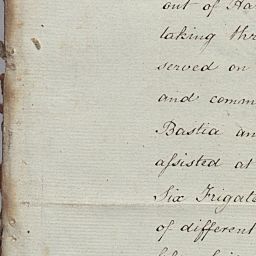 out of Ha
taking thr
served on
and comm
Bastia an
assisted at
Six Frigate
of different